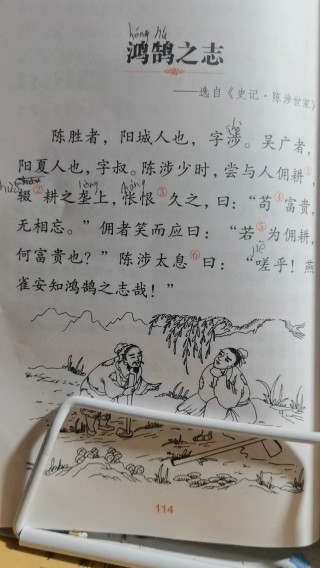 hóng hú
鸿鹄之志
——选自《史记·陈涉世家》
陈胜者，阳城人也，字涉。吴广者，
阳夏人也，字叔。陈涉少时，尝与人佣耕①，
辍②耕之垄上，怅恨③久之，曰：“苟④富贵，
无相忘。”佣者笑而应曰：“若⑤为佣耕，
何富贵也？”陈涉太息⑥曰：“嗟乎！燕
雀安知鸿鹄之志哉！”
114